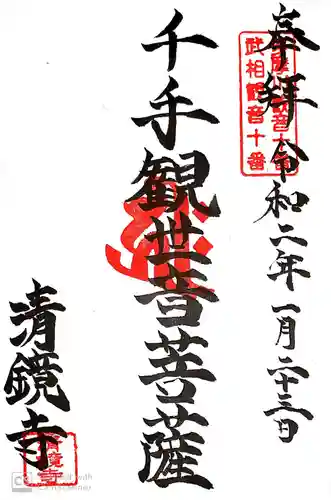 奉拝 令和二年 一月二十三日
武相観音十番
千手観世音菩薩
清鏡寺
清鏡寺